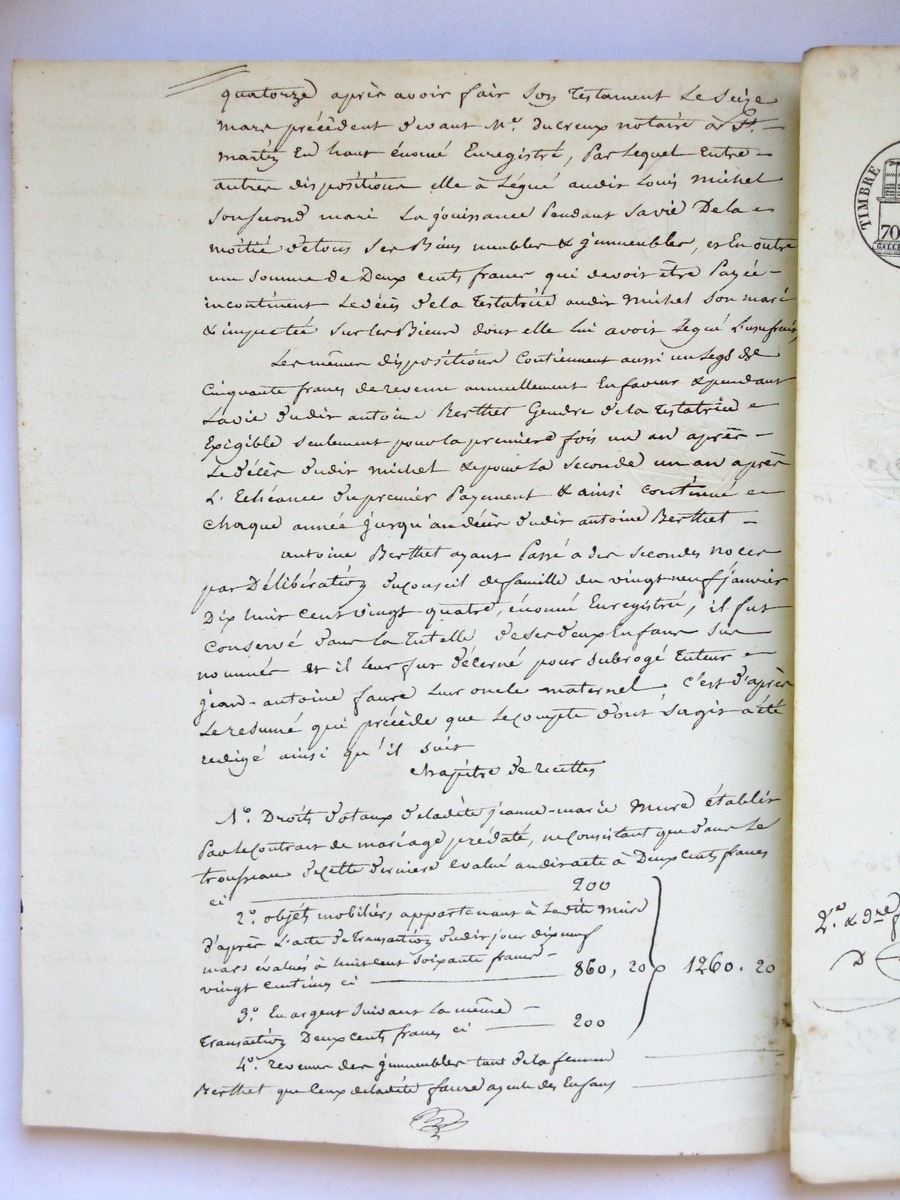 quatorze après avoir fair son testament le seize
mars précédent devant Me. ducreux notaire à St.-
martin En haut énoncé Enregistré, par lequel Entre-
autres dispositions elle à Légué audit Louis Michel
son second mari La jouissance pendant sa vie De la
moitié de tous ses Biens meubles & jmmeubles, et En outre
une somme de Deux cents francs qui devoit être Payée-
incontinent Le décès de la Testatrice audit Michel son mari
& imputée sur les Biens dont elle lui avoit Legué L'usufruit,
Les mêmes dispositions Contiennent aussi un Legs de
Cinquante francs de revenu annuellement En faveur & pendant
La vie dudit antoine Berthet Gendre de la testatrice
Exigible seulement pour la premiere fois un an après-
Le décès dudit michel & pour la seconde un an après
L'Echéance du premier Payement & ainsi continué
chaque année jusqu'au décès dudit antoine Berthet-
antoine Berthet ayant Passé à des secondes noces
par Délibération du conseil de famille du vingt neuf janvier
Dix huit cent vingt quatre, énoncé Enregistré, il fut
Conservé dans la tutelle de ses deux Enfans sus-
nommés et il leur fut décerné pour subrogé tuteur
jean-antoine faure Leur oncle maternel c'est d'après
Le resumé qui précède que Le compte dont s'agit a été
redigé ainsi qu'il suit
chapitre de recettes
1°. Droits dotaux de ladite jeanne-marie Mure établis
Par le contrat de mariage prédaté, ne consistant que dans le
trousseau de cette derniere évalué audit acte à Deux cents francs
ci 200
2°. objets mobiliers appartenant à Ladite Mure
d'après L'acte de transaction dudit jour dix neuf
mars évalués à huit cent soixante francs-
vingt centimes ci 860, 20 1260. 20
3°. En argent suivant la même-
transaction Deux cents francs ci 200
4°. revenu des jmmeubles tant de la femme
Berthet que Ceux de ladite faure ayeule des Enfans
TIMBRE
70